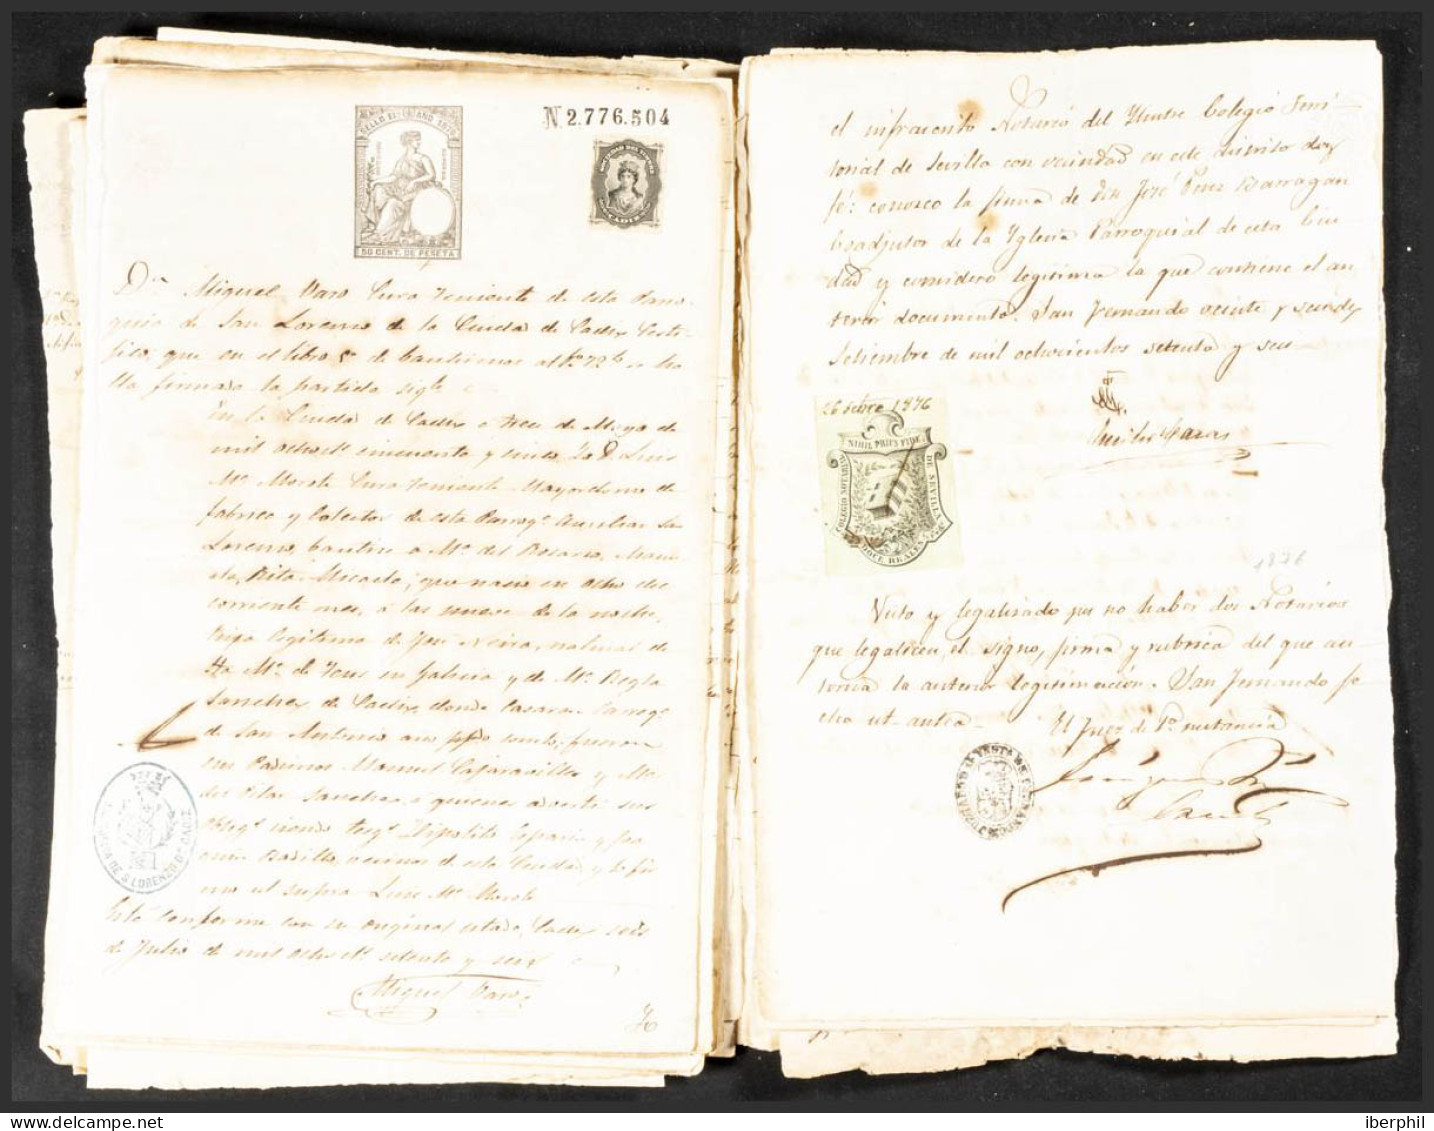 SELLO 11º AÑO 1876
50 CENT. DE PESETA
N 2.776.504
CADIZ
Dn Miguel Varo Cura Teniente de esta Parro-
quia de San Lorenzo de la Ciudad de Cadiz Certi-
fico, que en el libro 8º de bautismos al fº 72 se ha
lla firmada la partida sigte
En la Ciudad de Cadiz a trece de Mayo de
mil ochocts cincuenta y cinco Yo D. Luis
Mª Morote Cura Teniente Mayordomo de
fabrica y Colector de esta Parroqª Auxiliar Sn
Lorenzo, bautice a Mª del Rosario, Manue
la, Rita, Micaela, que nacio en ocho del
corriente mes, a las nueve de la noche,
hija legitima de José Neira, natural de
Sta Mª de en Galicia y de Mª Regla
Sanchez de Cadiz, donde casaron Parroqª
de San Antonio año pasdo fueron
sus Padrinos Manuel y Mª
del Pilar Sanchez, a quienes advertí sus
obligs siendo tesgs Hipolito y Joa
quin Badillo vecinos de esta Ciudad, y lo fir
mo ut supra Luis Mª Morote
Está conforme con su original citado, Cadiz seis
de Julio de mil ochoctˢ setenta y seis
Miguel Varo
PARROQUIA DE S. LORENZO DE CADIZ
el infrascrito Notario del Ylustre Colegio Terri-
torial de Sevilla con vecindad en este distrito doy
fé: conozco la firma de Don José Perez Barragan
Coadjutor de la Yglesia Parroquial de esta Ciu
dad y considero legitima la que contiene el an
terior documento. San Fernando veinte y seis de
Setiembre de mil ochocientos setenta y seis
26 setbre 1876
NIHIL PRIUS FIDE
COLEGIO NOTARIAL
DE SEVILLA
DOCE REALES
1876
Visto y legalizado por no haber dos Notarios
que legalicen el signo, firma y rubrica del que au
toriza la anterior legitimacion. San Fernando fe
cha ut antea
El Juez de 1ª instancia
JUZGADO DE 1ª INSTANCIA DE S. FERNANDO
iberphil